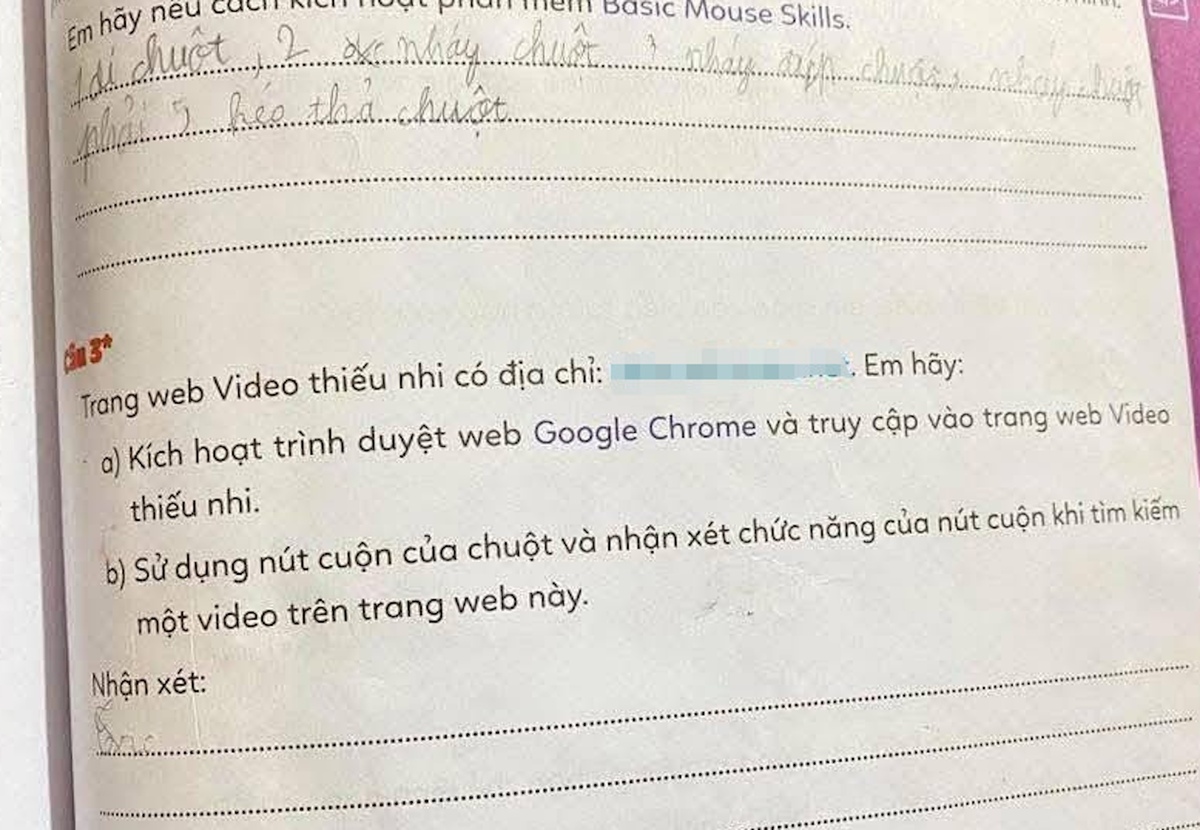 Em hãy nêu cách kích hoạt phần mềm Basic Mouse Skills.
1 di chuột, 2 nháy chuột 3 nháy đúp chuột, nháy chuột
phải 5, kéo thả chuột
Câu 3*
Trang web Video thiếu nhi có địa chỉ: . Em hãy:
a) Kích hoạt trình duyệt web Google Chrome và truy cập vào trang web Video
thiếu nhi.
b) Sử dụng nút cuộn của chuột và nhận xét chức năng của nút cuộn khi tìm kiếm
một video trên trang web này.
Nhận xét: